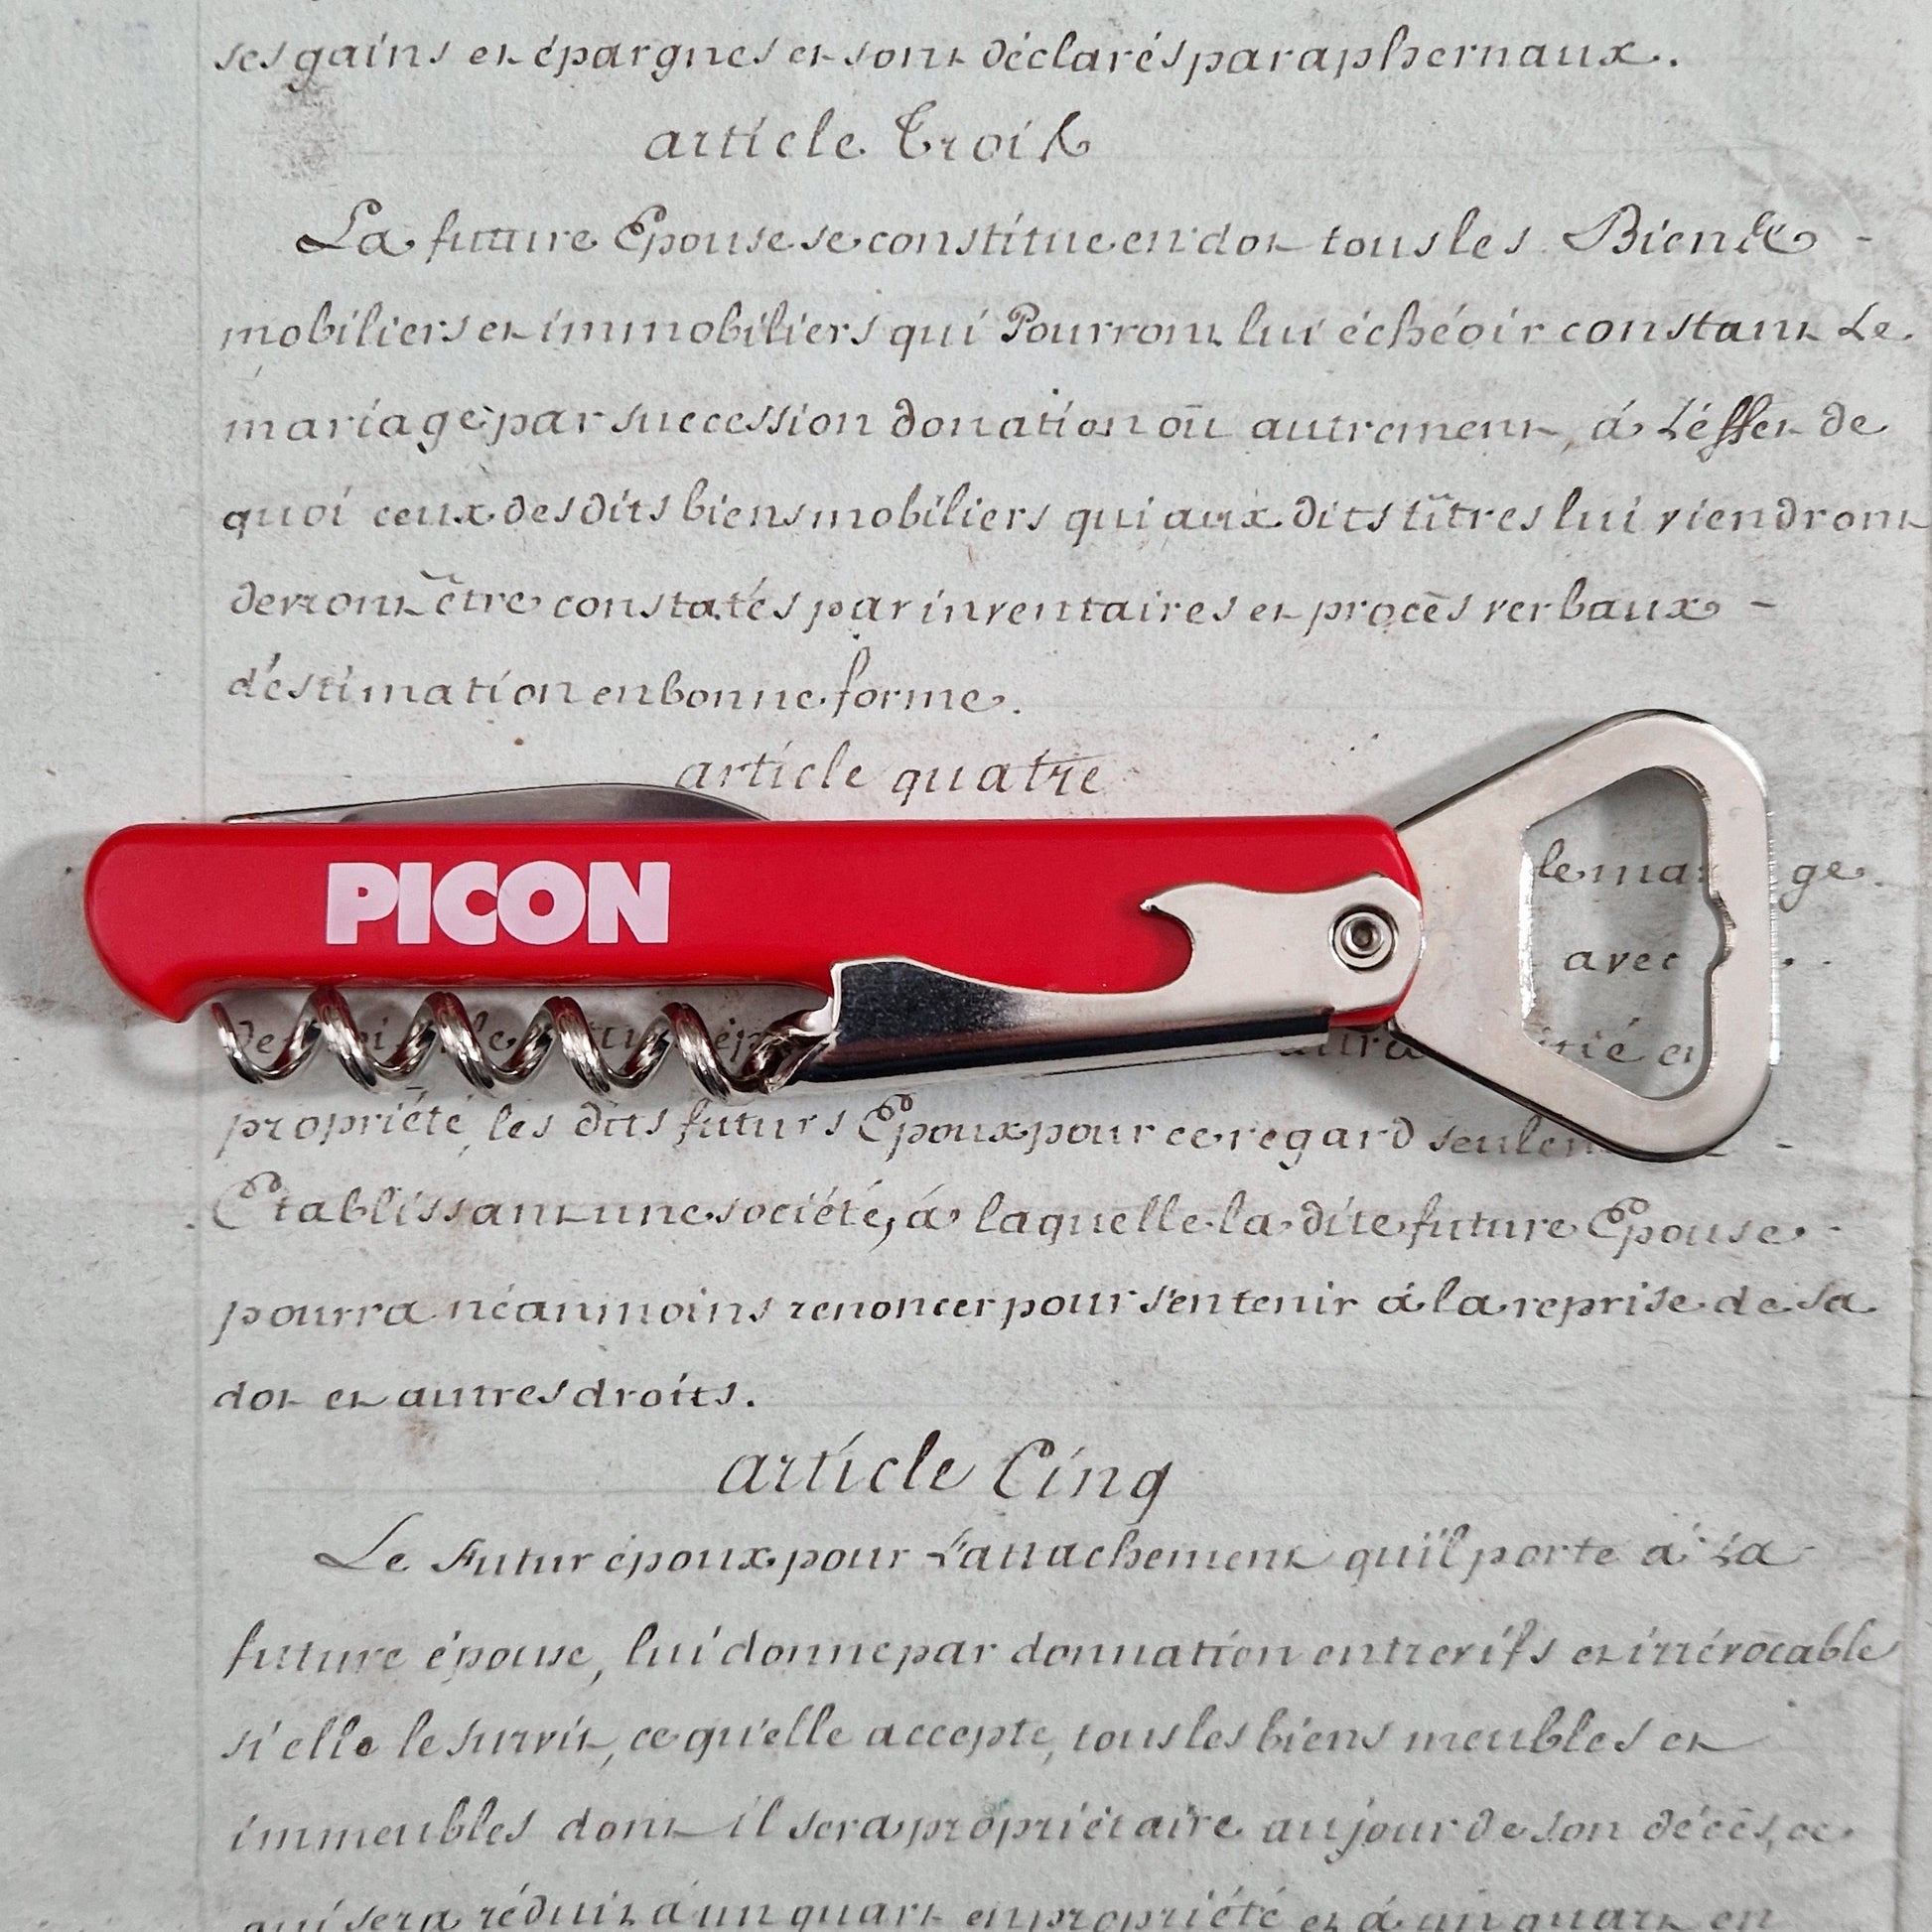 ses gains et épargnes et sont déclarés paraphernaux.
article Trois
La future Epouse se constitue en dot tous les Biens -
mobiliers et immobiliers qui Pourront lui échéoir constant Le
mariage par succession donation oū autrement, á L'éffet de
quoi ceux des dits biens mobiliers qui aux dits tîtres lui viendront
devront être constatés par inventaires et procēs verbaux -
d'éstimation en bonne forme.
article quatre
PICON
le ge.
avec
de et
propriété, les dits futurs Epoux pour ce regard -
Etablissant une société, á laquelle la dite future Epouse -
pourra néanmoins renoncer pour s'en tenir á la reprise de sa
dot et autres droits.
article Cinq
Le Futur époux pour L'attachement qu'il porte á La
future épouse, lui donne par donnation entrevifs et irrévocable
si elle le survit, ce qu'elle accepte, tous les biens meubles et
immeubles dont il sera propriétaire au jour de son décēs, ce
qui sera réduit á un quart en propriété et á un quart en